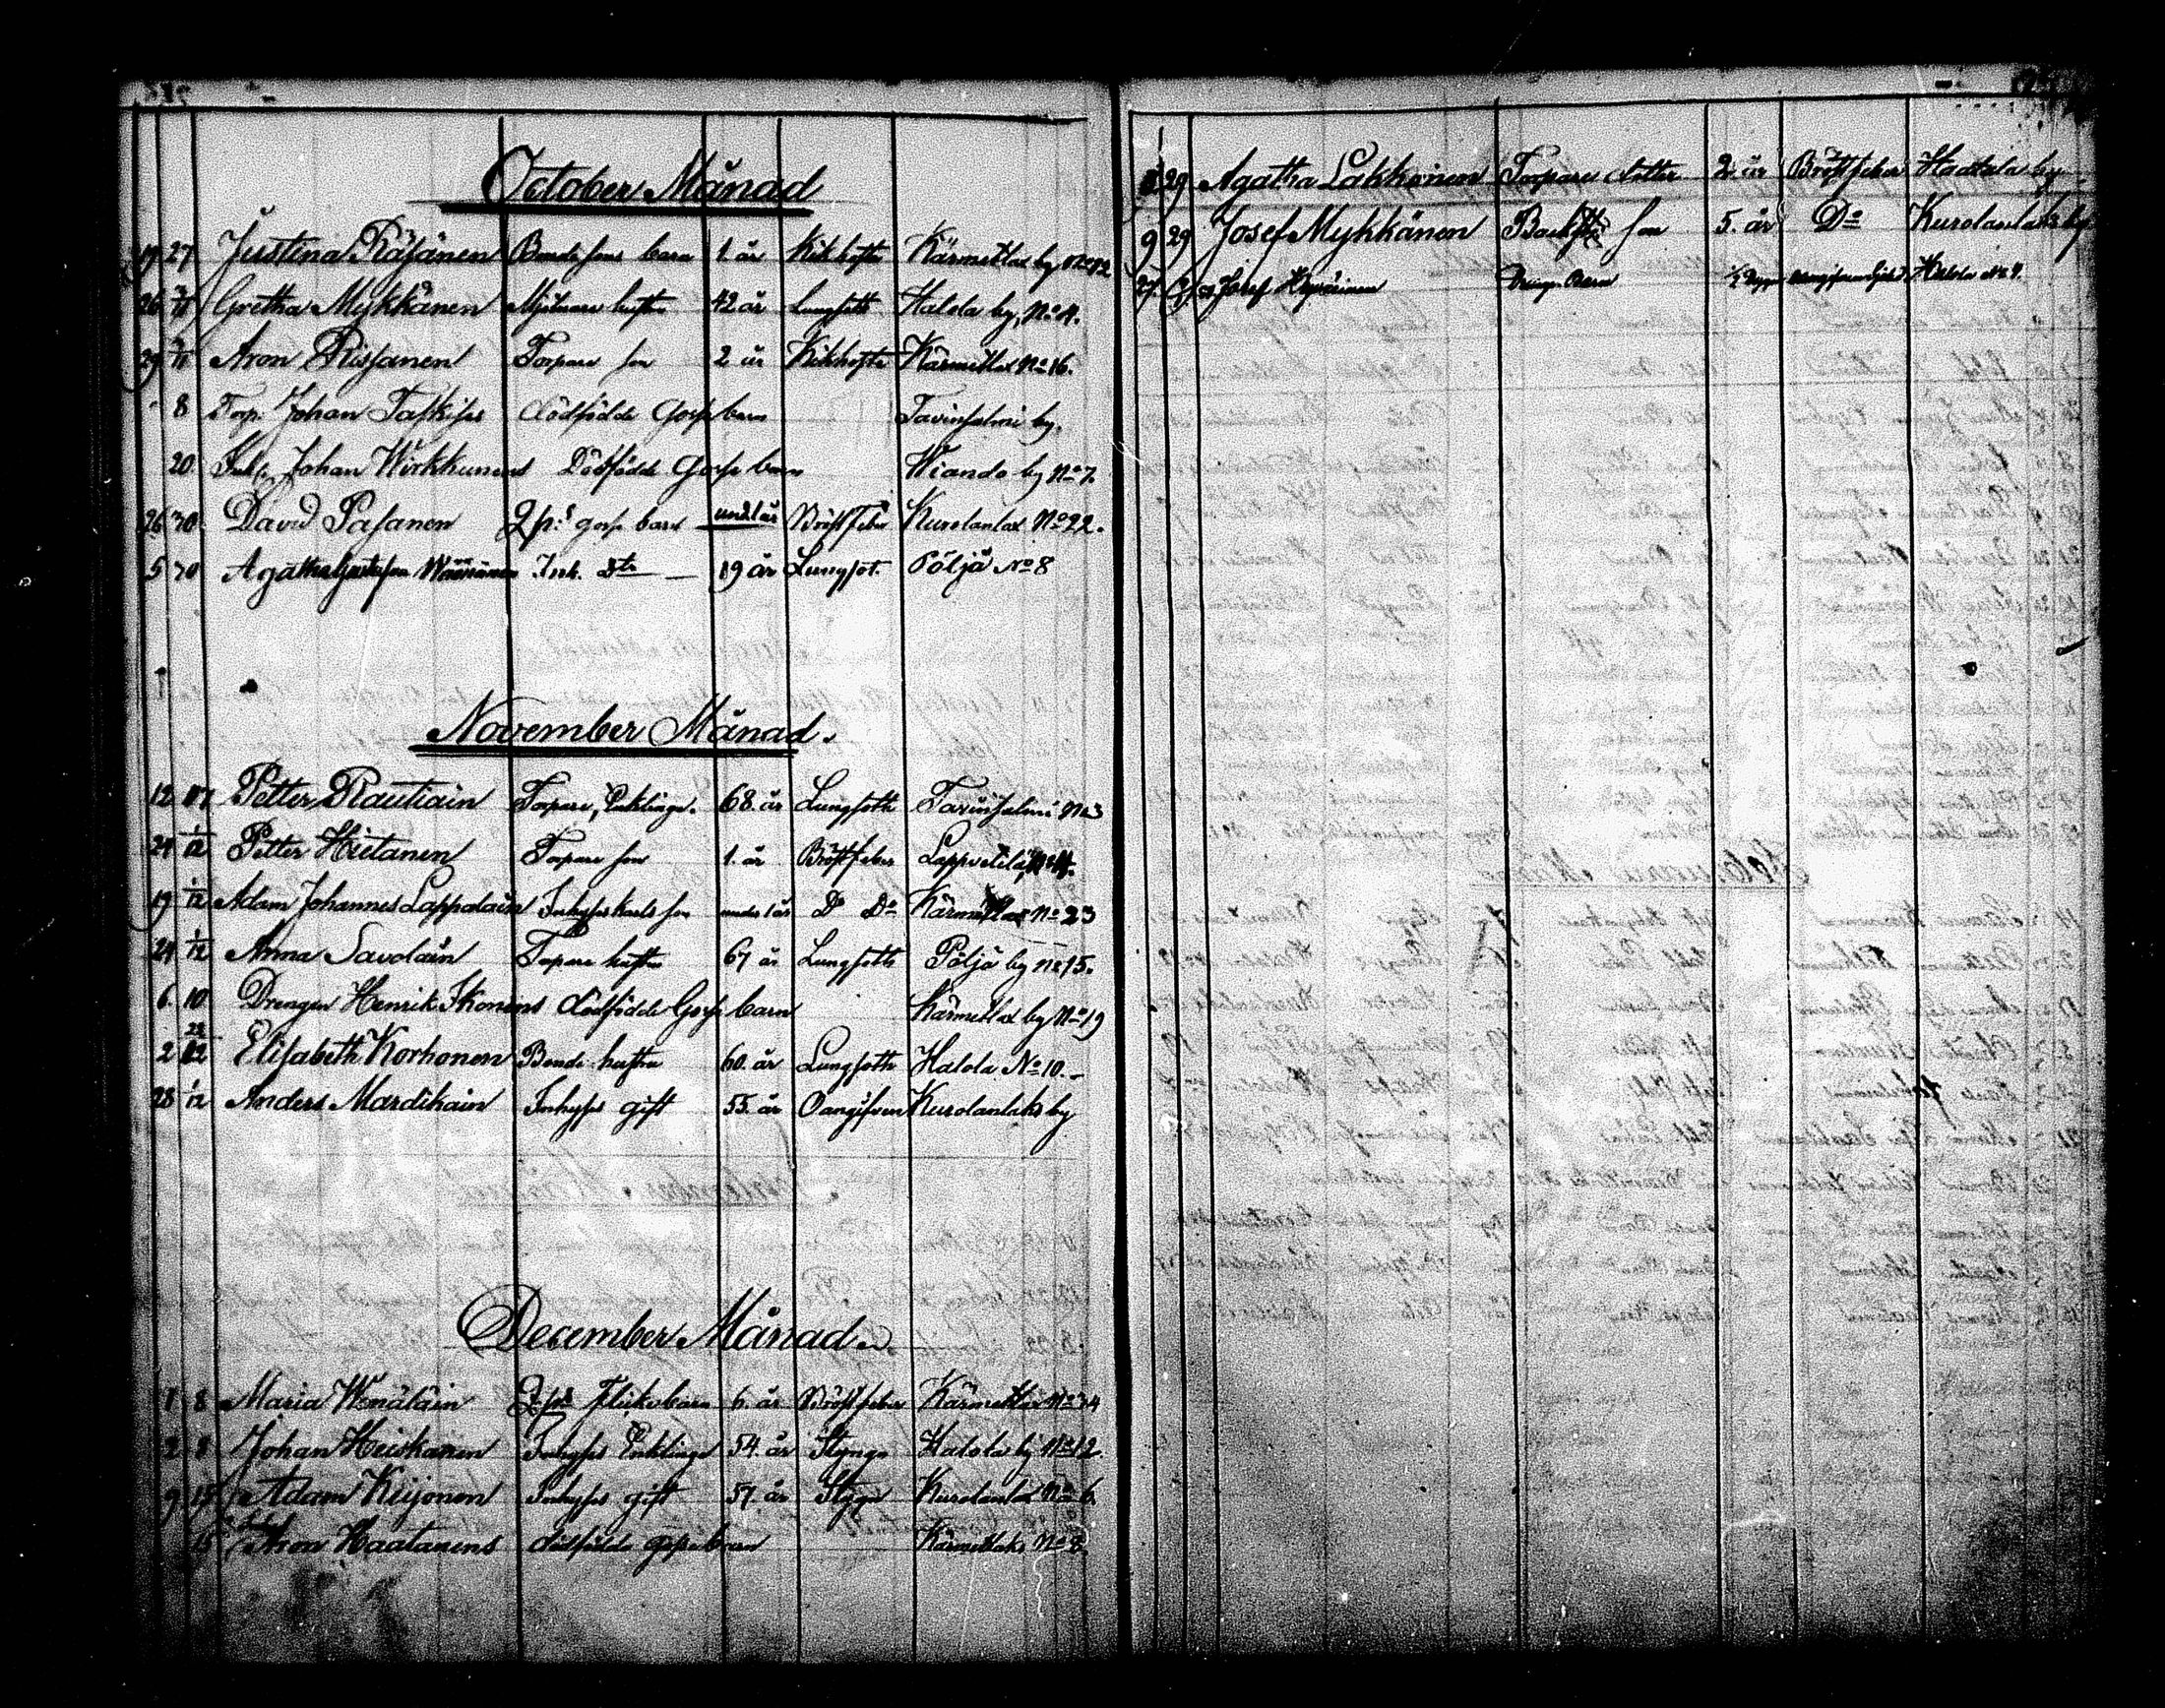 October Månad
19 27 Justina Räsänen Bonde sons barn 1. år Kikhosta Kärmetlax by No 12
26 2/11 Gretha Mykkänen Mjölnare hustru 42 år Lungsott Halola by, No 4.
29 2/11 Aron Rissanen Torpare son 2 år Kikhosta Kärmetlax No 16.
8 Torp. Johan Taskises dödfödde Gosse barn Tavinsalmi by.
20 Johan Wirkkunens Dödfödde Gosse barn Wiando by No 7.
26 30 David Pasanen gosse barn und. 1 år Bröstfeber Kurolanlax No 22.
5 30 Agatha Inh. dtr 19 år Lungsot. Pöljä No 8
November Månad.
12 17 Petter Rautiain Torpare, Enklinge. 68. år Lungsott Tavinsalmi No 3
24 1/12 Petter Hietanen Torpare son 1. år Bröstfeber Lappvetelä No 4.
19 1/12 Adam Johannes Lappalain Inhyses karls son under 1 år Do Do Kärmetlax No 23
24 1/12 Anna Savolain Torpare hustru 67 år Lungsott Pöljä by No 15.
6. 10 Drengen Henrik Ikonens dödfödde Gosse barn Kärmetlax by No 19
2 22/12 Elisabeth Korhonen Bonde hustru 60. år Lungsott Halola No 10.
28 1/12 Anders Mardikain Inhyses gift 55. år Oangifven Kurolanlaks by
December Månad.
1 8 Maria Wenäläin Flickobarn 6. år Bröstfeber Kärmetlax No 34
2 8 Johan Heiskanen Inhyses Enklinge 54. år Styng Halola by No 12.
9 15 Adam Keijonen Inhyses gift 57. år Styng Kurolanlax No 6.
15 Aron Haatanens dödfödde gosse barn Kärmetlaks No 8.
8 29 Agatha Lakkoinen Torpare dotter 2. år Bröstfeber Haatala by
9 29 Josef Mykkänen son 5. år Do Kurolanlaks by
27. Josef Drängs Barn Halola No 4.